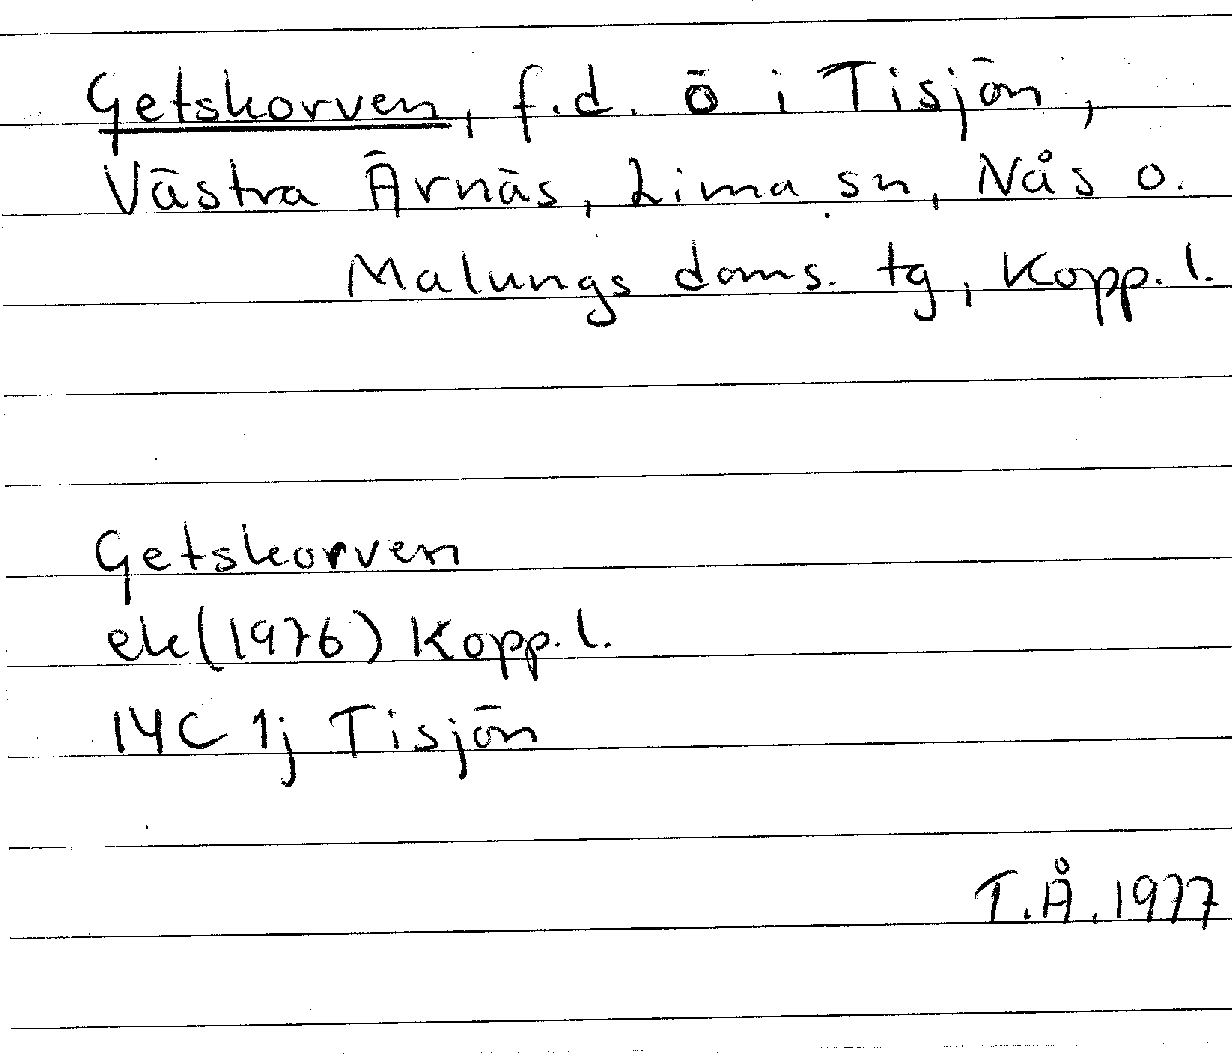 Getskorven, f.d. ö i Tisjön,
Västra Ärnäs, Lima sn, Nås o.
Malungs doms. tg, Kopp. l.
Getskorven
ek (1976) Kopp. l.
14C 1j Tisjön
T.Å. 1977